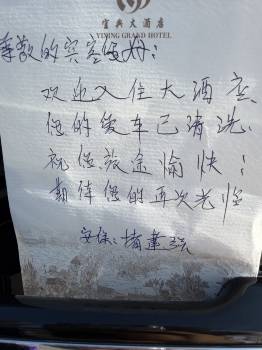 宜兴大酒店
YIXING GRAND HOTEL
尊敬的宾客您好：
欢迎入住大酒店、
您的爱车已清洗、
祝您旅途愉快！
期待您的再次光临
安保：